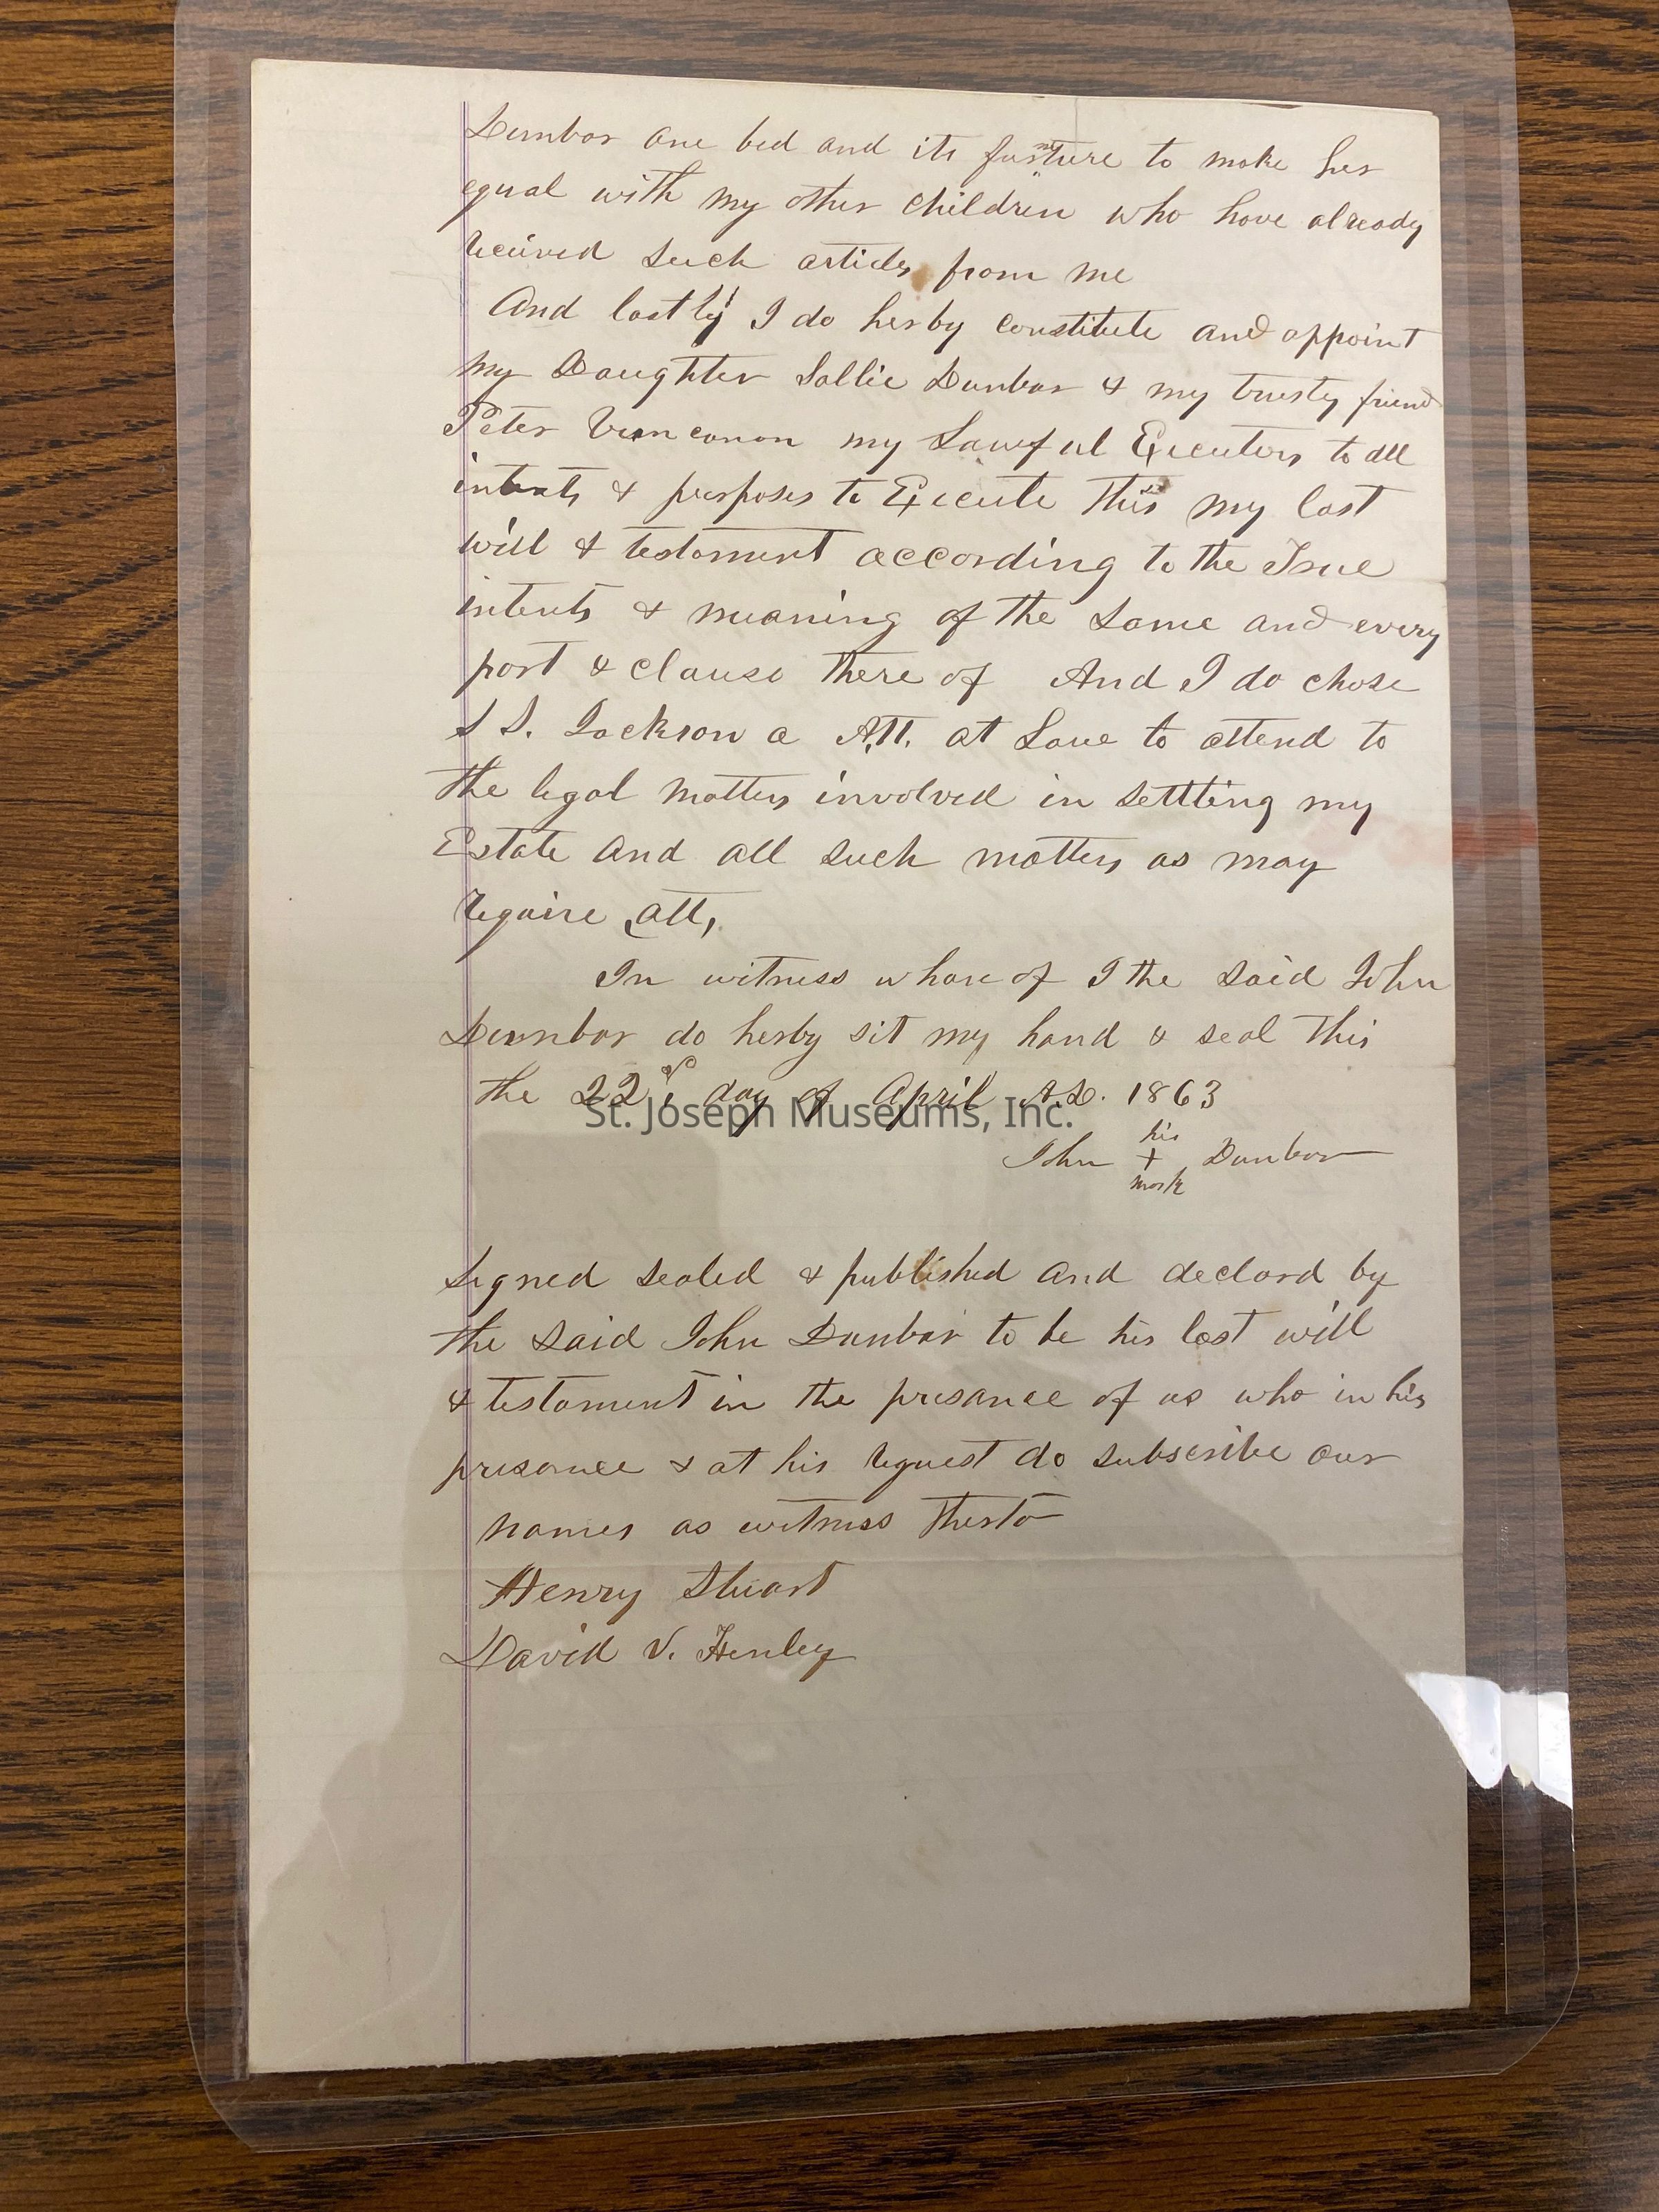 Dunbar one bed and its furniture to make her
equal with my other children who have already
received such articles from me
And lastly I do herby constitute and appoint
my Daughter Sallie Dunbar & my trusty friend
Peter my Lawful Executors to all
intents & purposes to Execute this my last
will & testament according to the True
intents & meaning of the Same and every
part & clause there of And I do chose
S S. Jackson a Att. at Law to attend to
the legal matters involved in settling my
Estate and all such matters as may
require att,
In witness whare of I the said John
Dunbar do herby sit my hand & seal this
the 22 day of April A.D. 1863
his
John + Dunbar
mark
Signed sealed & published and declard by
the said John Dunbar to be his last will
& testament in the presance of us who in his
presance & at his request do subscribe our
names as witness therto
Henry Stuart
David V. Henley
St. Joseph Museums, Inc.